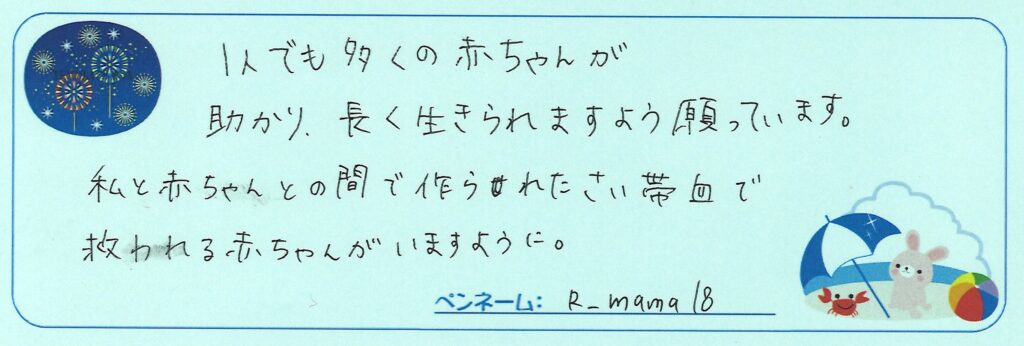 1人でも多くの赤ちゃんが
助かり、長く生きられますよう願っています。
私と赤ちゃんとの間で作られたさい帯血で
救われる赤ちゃんがいますように。
ペンネーム: R_mama18